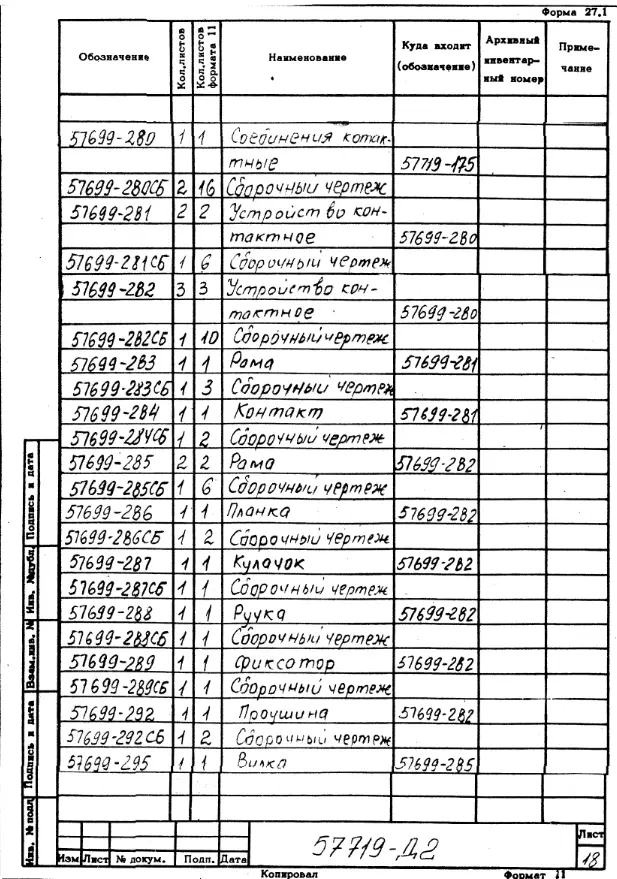 Форма 27.1
Обозначение Кол.листов Кол.листов формата 11 Наименование Куда входит (обозначение) Архивный инвентар- ный номер Приме- чание
57699-280 1 1 Соединения котак-
тные 57719-175
57699-280СБ 2 16 Сборочный чертеж
57699-281 2 2 Устройство кон-
тактное 57699-280
57699-281СБ 1 6 Сборочный чертеж
57699-282 3 3 Устройство кон-
тактное 57699-280
57699-282СБ 1 10 Сборочный чертеж
57699-283 1 1 Рама 57699-281
57699-283СБ 1 3 Сборочный чертеж
57699-284 1 1 Контакт 57699-281
57699-284СБ 1 2 Сборочный чертеж
57699-285 2 2 Рама 57699-282
57699-285СБ 1 6 Сборочный чертеж
57699-286 1 1 Планка 57699-282
57699-286СБ 1 2 Сборочный чертеж
57699-287 1 1 Кулачок 57699-282
57699-287СБ 1 1 Сборочный чертеж
57699-288 1 1 Ручка 57699-282
57699-288СБ 1 1 Сборочный чертеж
57699-289 1 1 Фиксатор 57699-282
57699-289СБ 1 1 Сборочный чертеж
57699-292 1 1 Проушина 57699-282
57699-292СБ 1 2 Сборочный чертеж
57699-295 1 1 Вилка 57699-285
Инв. № подл. Подпись и дата Взам.инв. № Инв. №дубл. Подпись и дата
Изм Лист № докум. Подп. Дата
57719-Д2
Лист
18
Копировал Формат 11